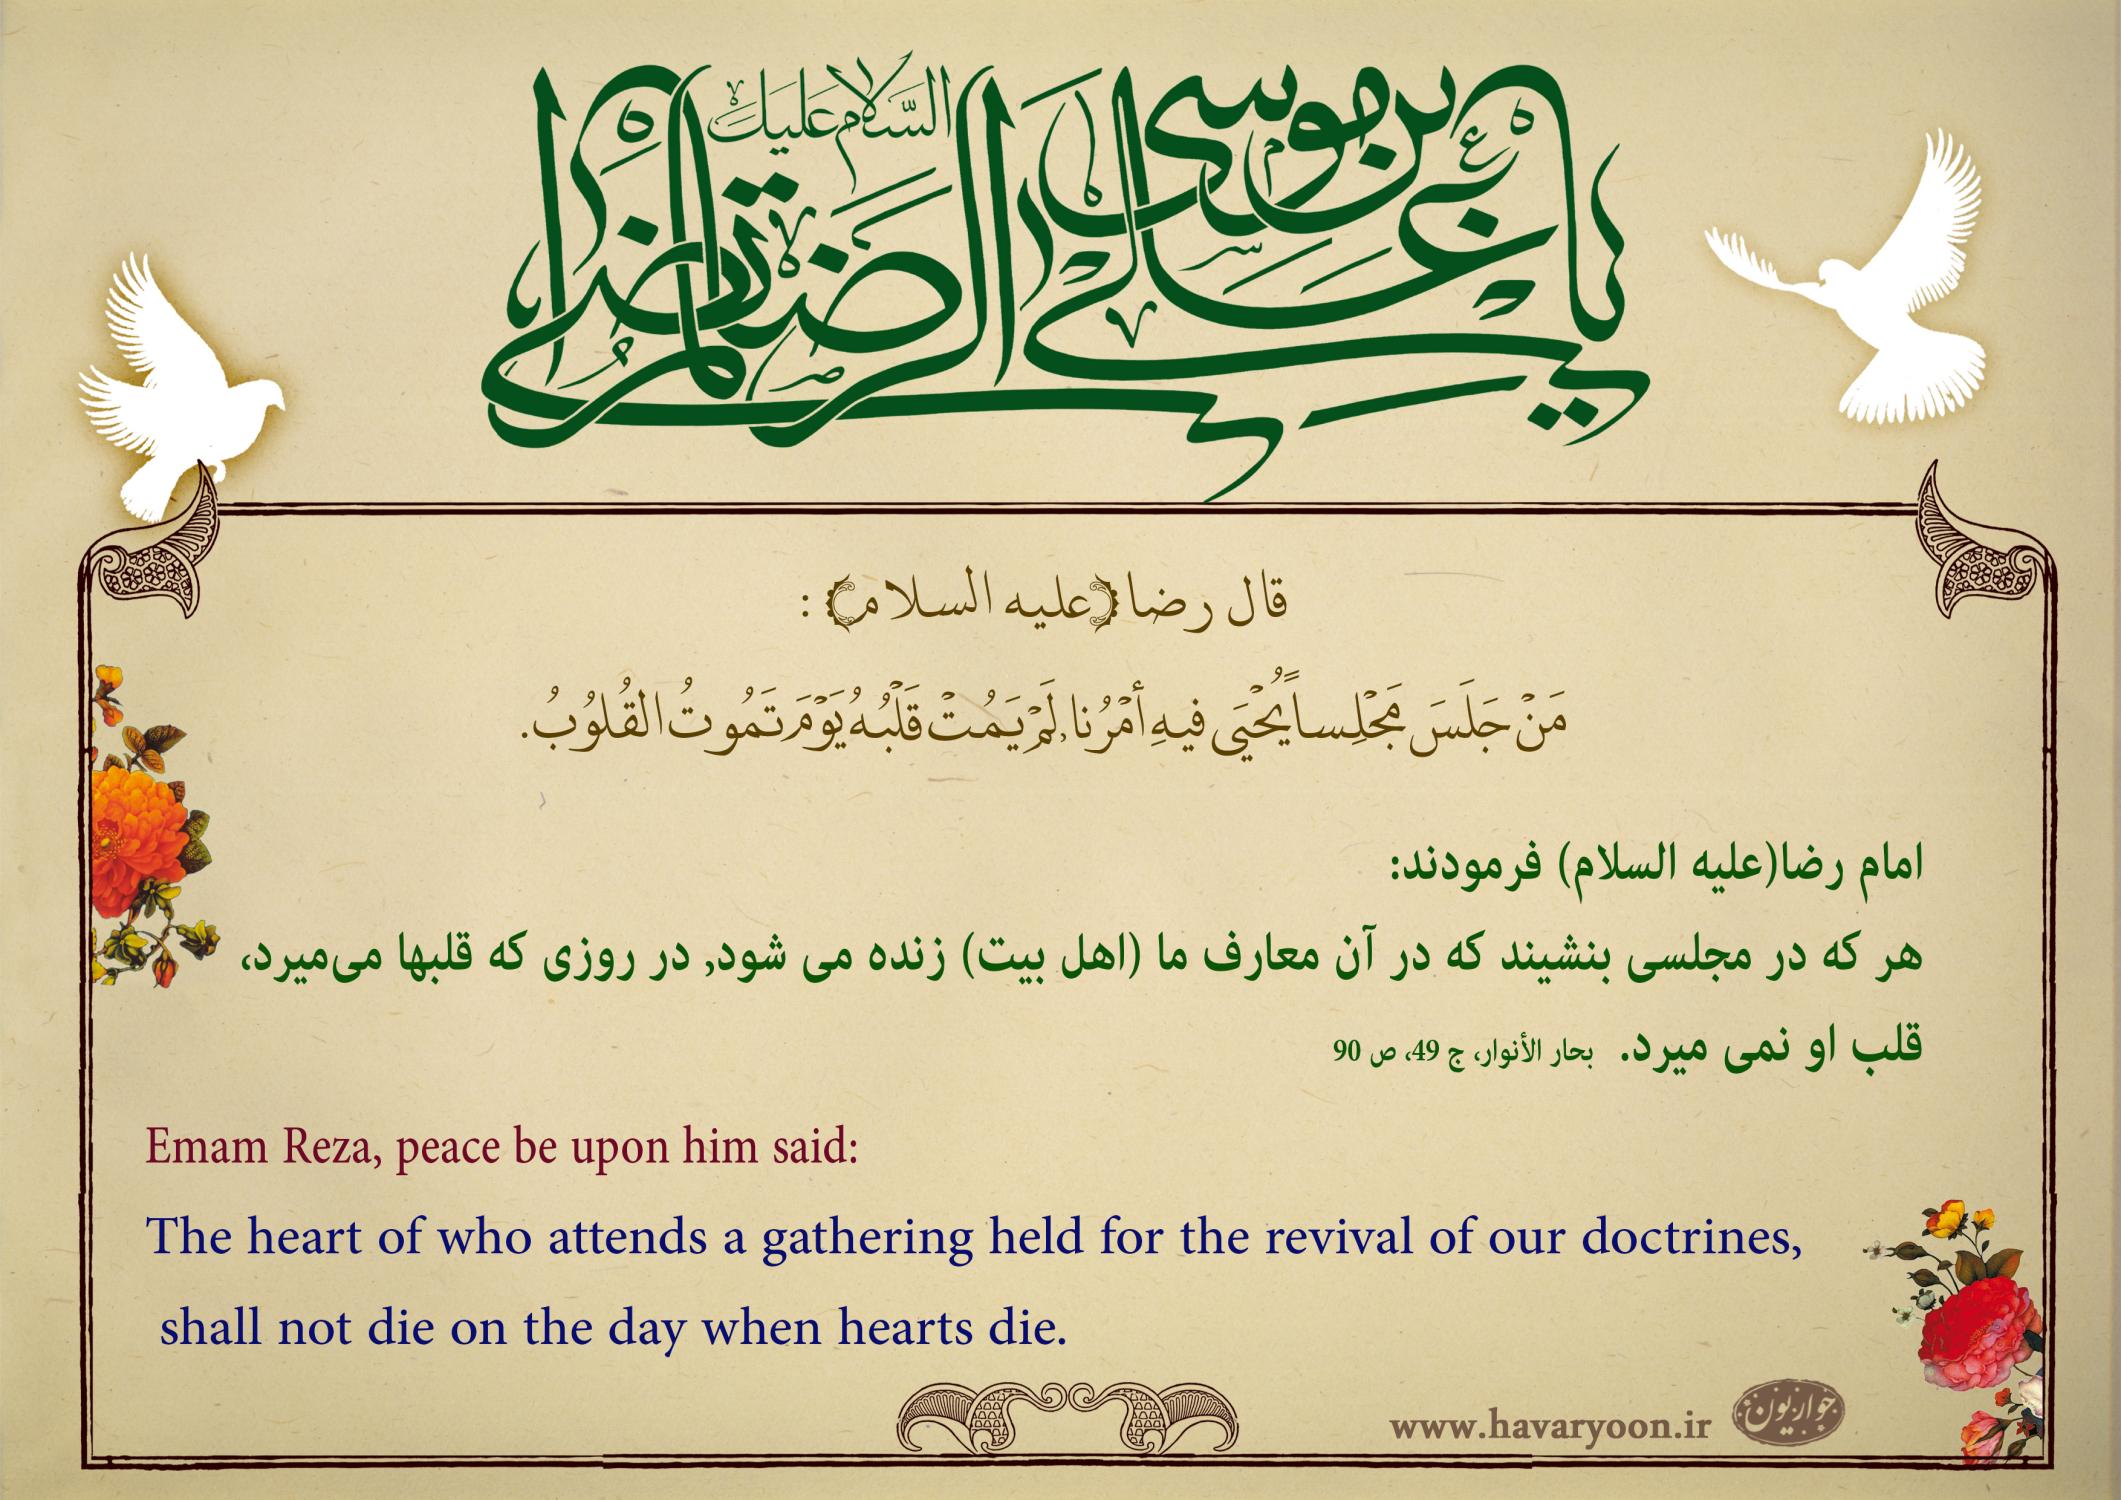 السلام عليك
يا علي بن موسى الرضا المرتضى
قال رضا(عليه السلام) :
مَنْ جَلَسَ مَجْلِساً يُحْيَى فيهِ أَمْرُنا, لَمْ يَمُتْ قَلْبُهُ يَوْمَ تَمُوتُ القُلُوُبُ.
امام رضا(عليه السلام) فرمودند:
هر که در مجلسی بنشیند که در آن معارف ما (اهل بیت) زنده می شود, در روزی که قلبها می‌میرد،
قلب او نمی میرد. بحار الأنوار، ج 49، ص 90
Emam Reza, peace be upon him said:
The heart of who attends a gathering held for the revival of our doctrines,
shall not die on the day when hearts die.
www.havaryoon.ir